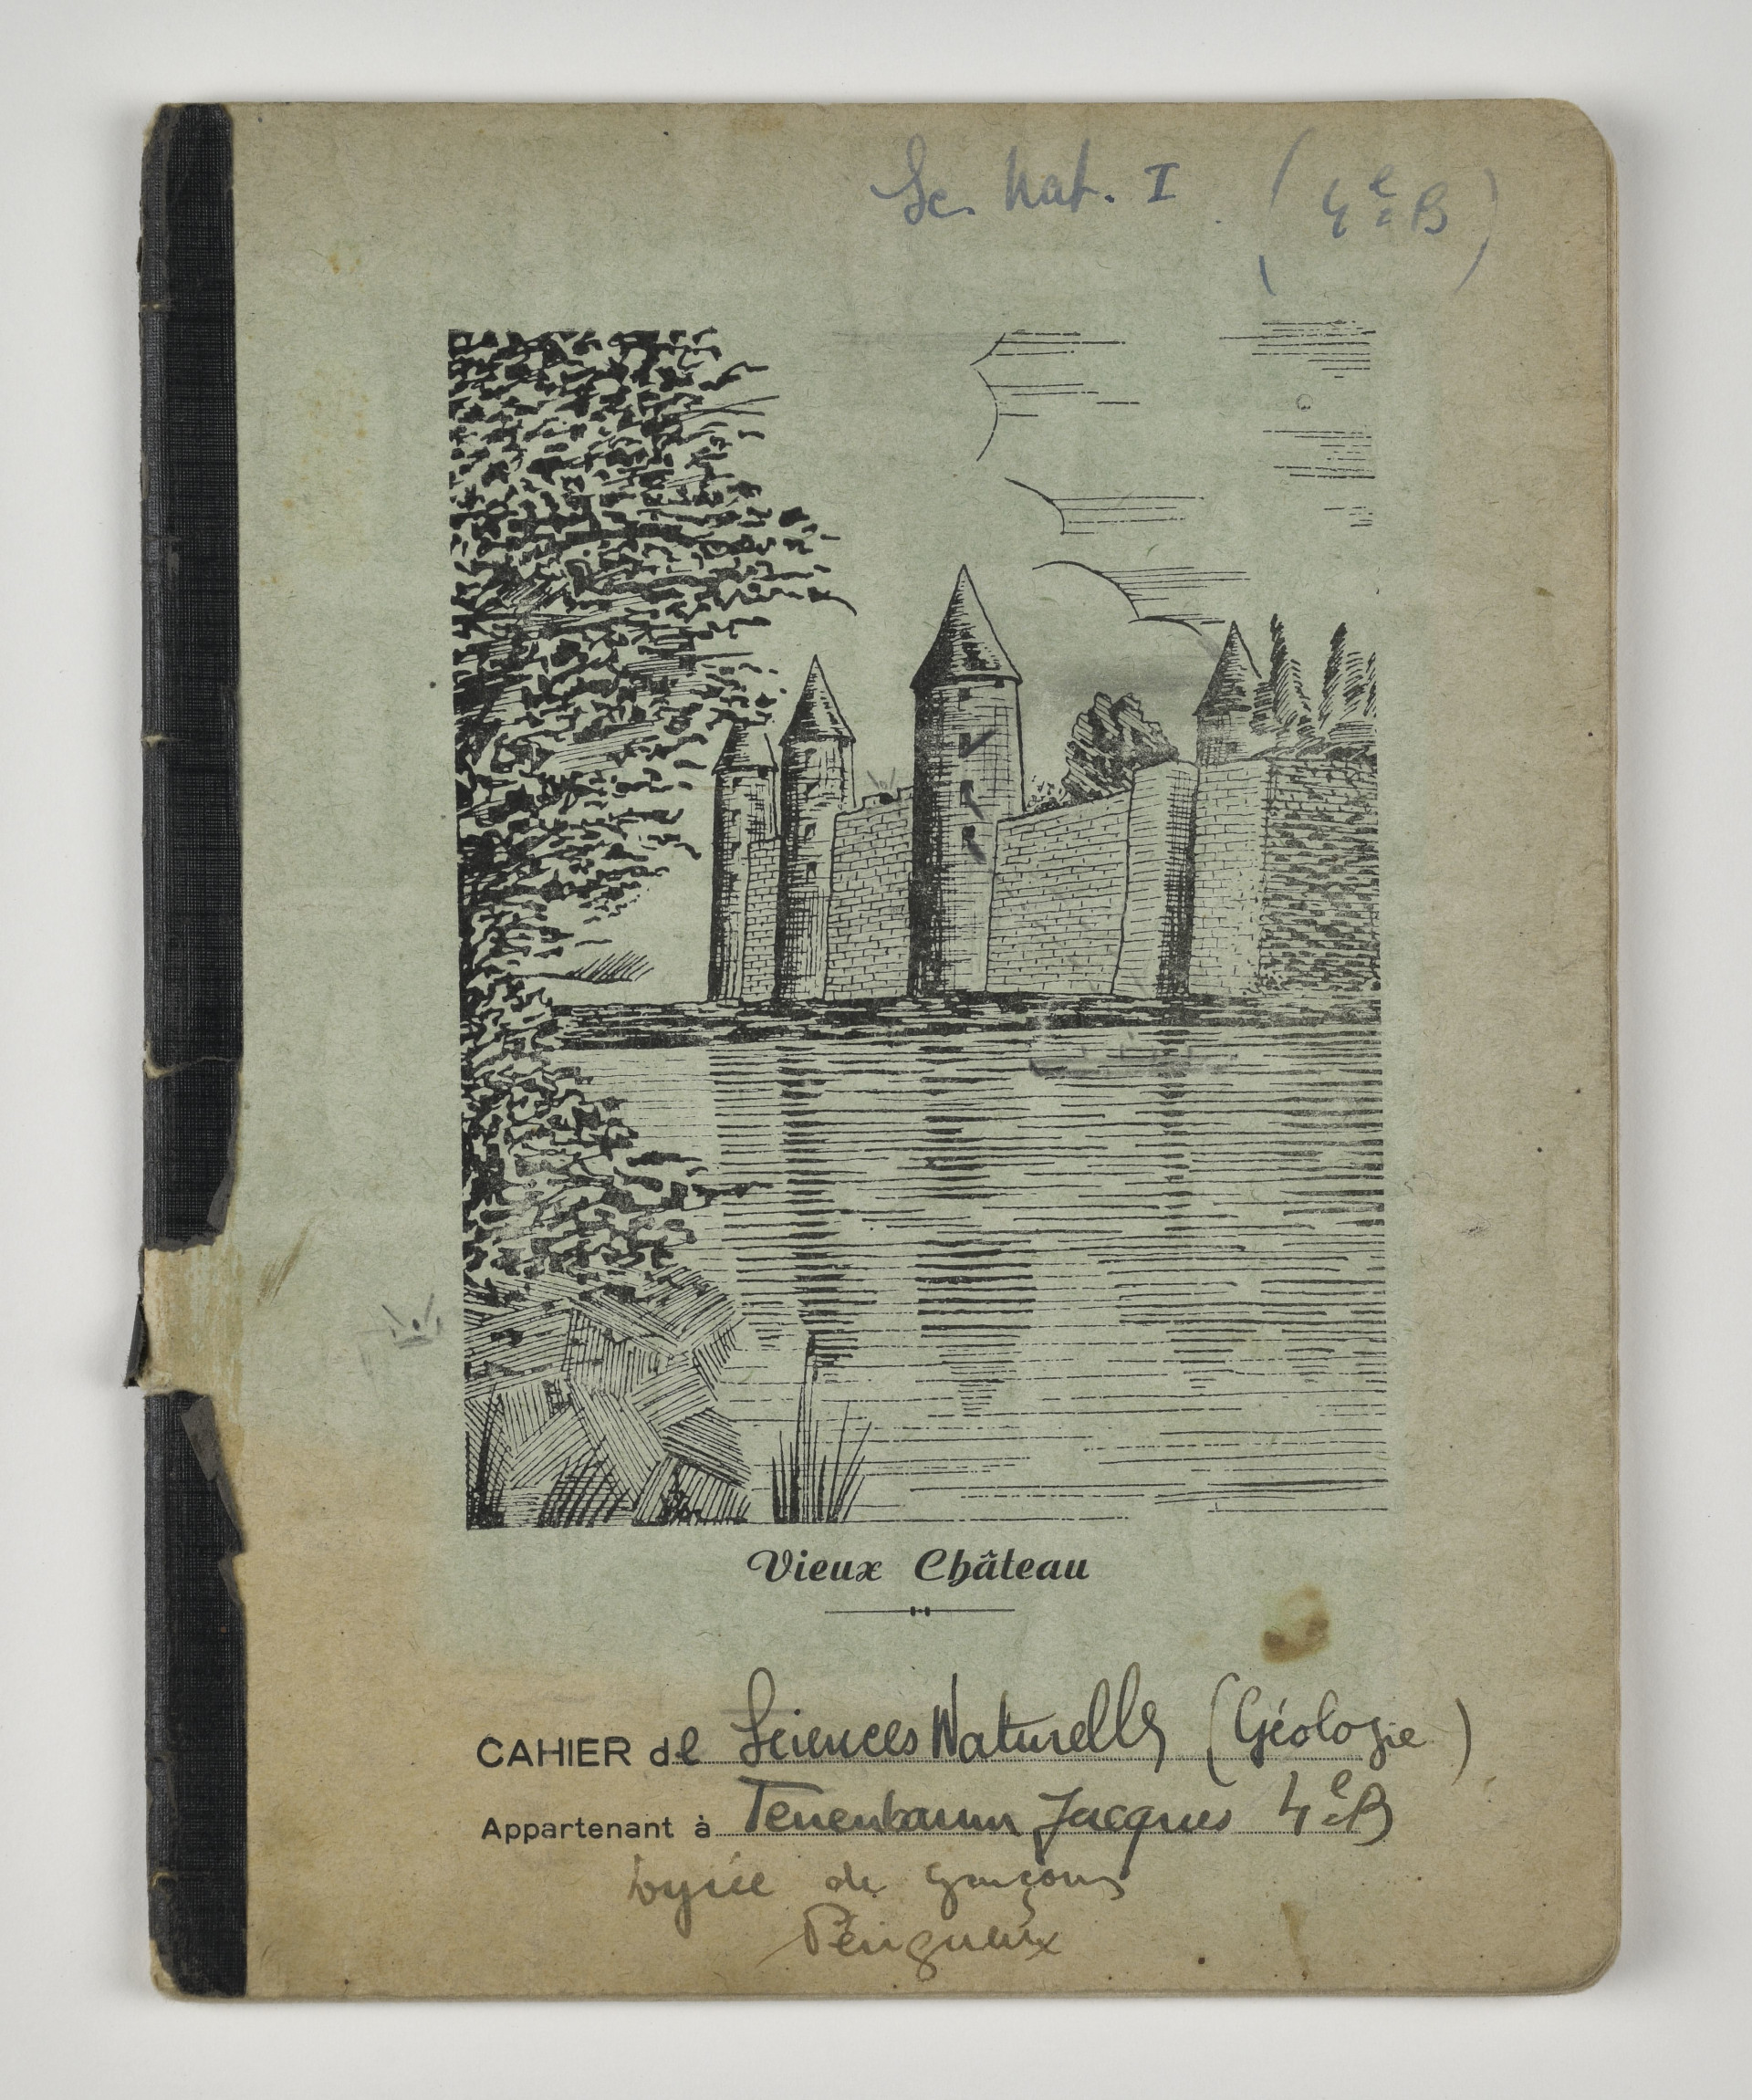 Sc. Nat. I (4e B)
Vieux Château
CAHIER de Sciences Naturelles (Géologie)
Appartenant à Tenenbaum Jacques 4e B
Lycée de Garçons
Périgueux